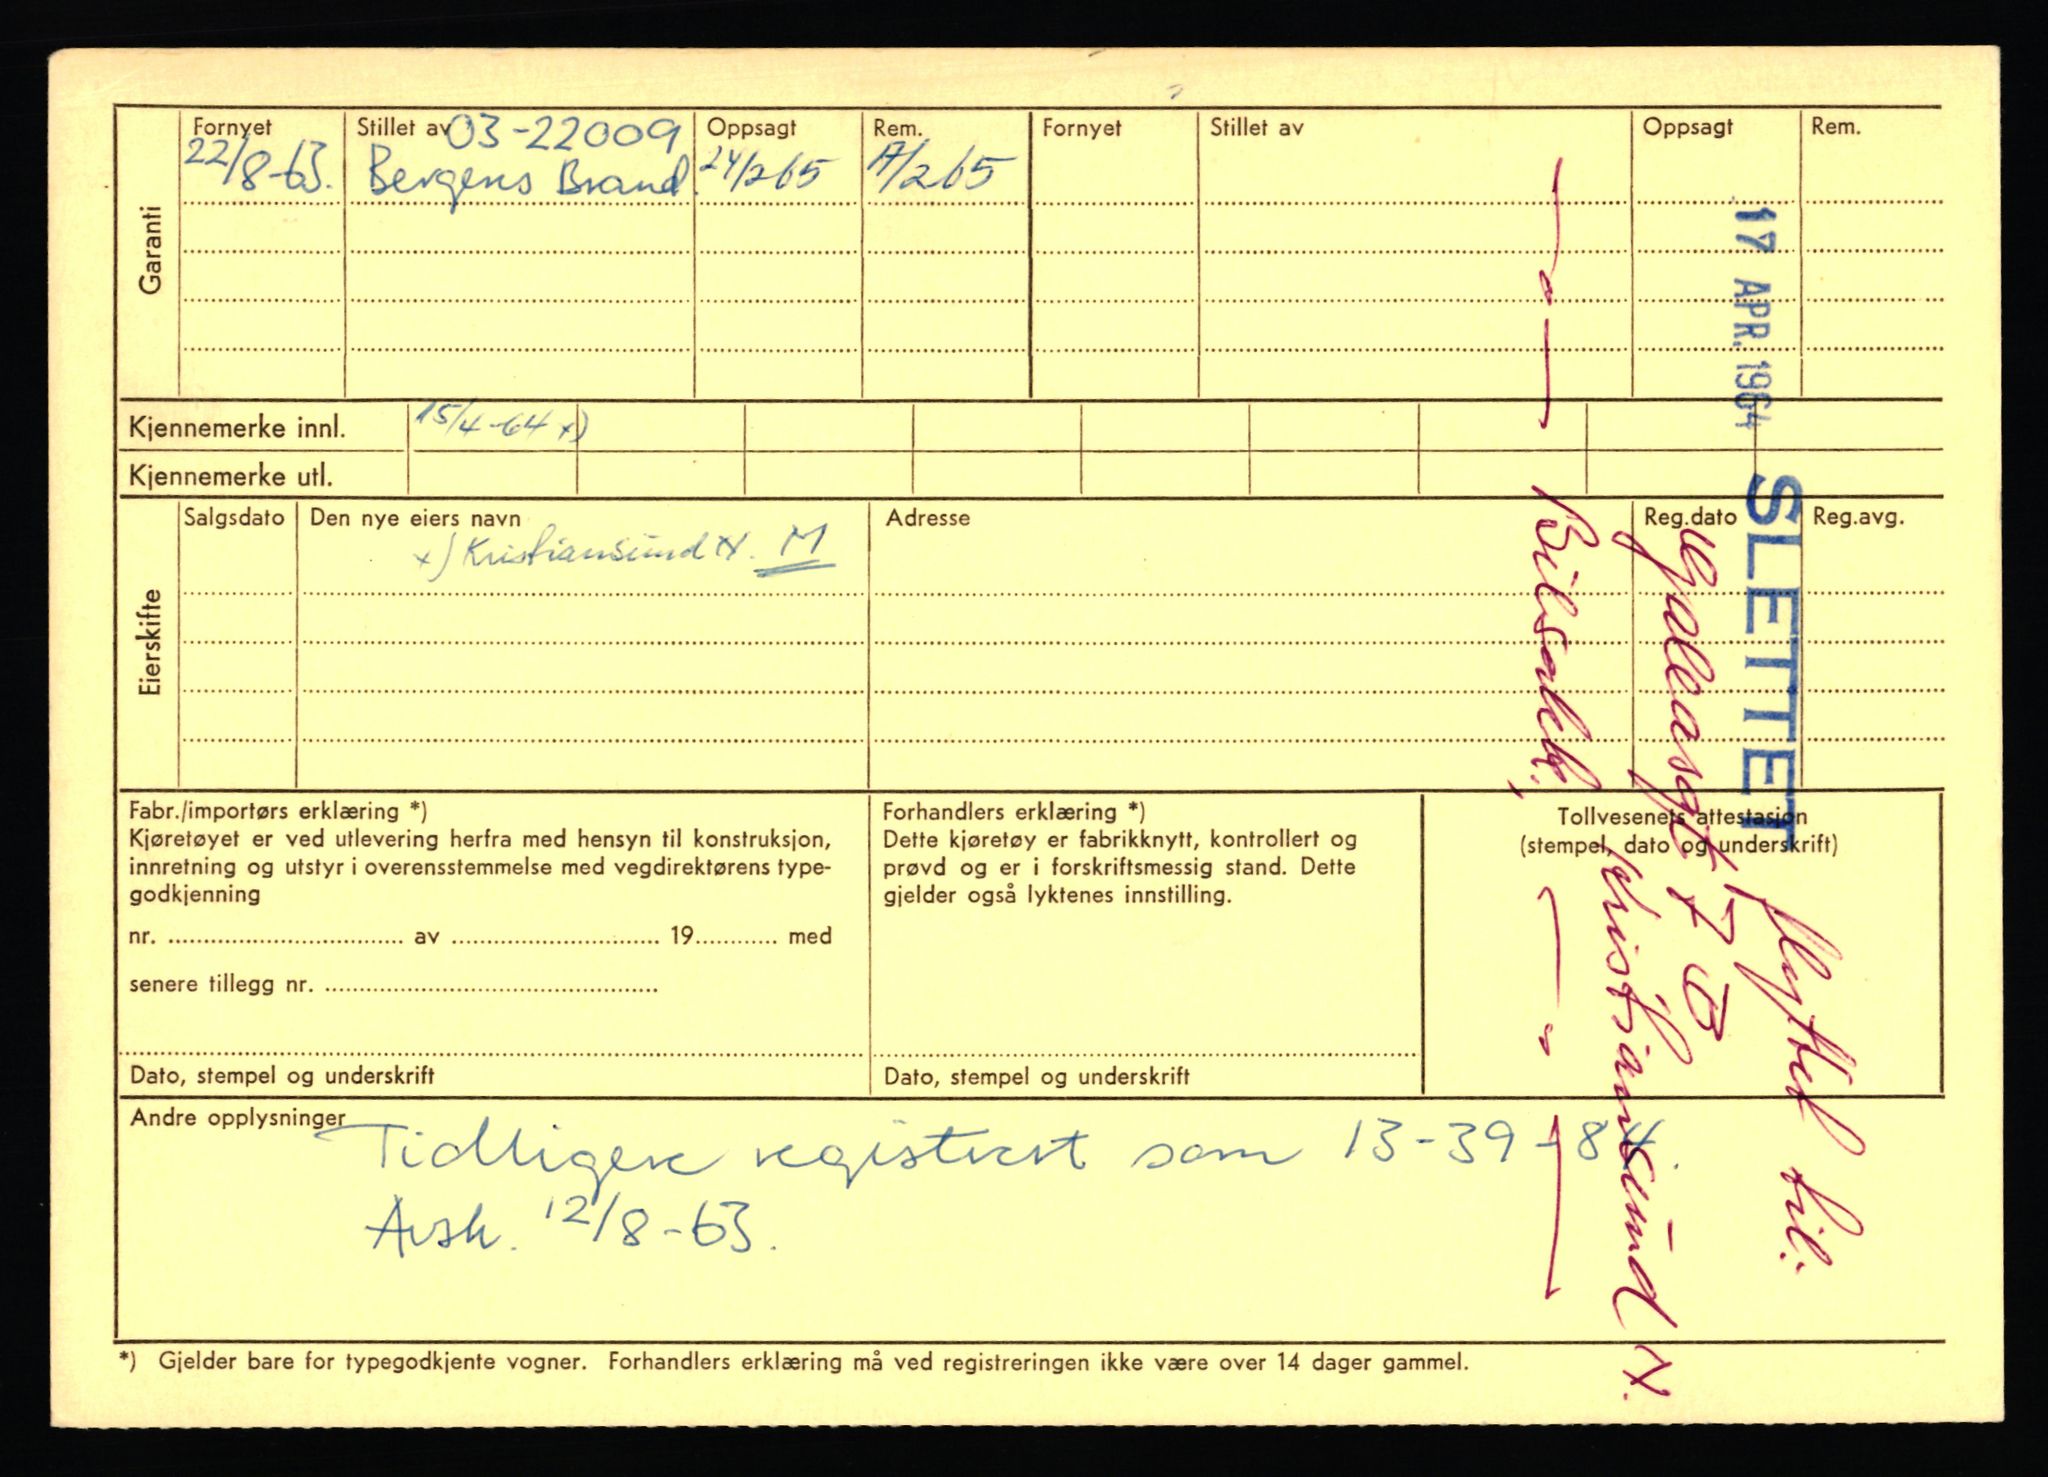 Garanti
Fornyet Stillet av 03-22009 Oppsagt Rem. Fornyet Stillet av Oppsagt Rem.
22/8-63. Bergens Brand. 24/2 65 /2 65
Kjennemerke innl. 15/4-64 x)
Kjennemerke utl.
Eierskifte
Salgsdato Den nye eiers navn Adresse Reg.dato Reg.avg.
x) Kristiansund N. M
17 APR. 1964 SLETTET
flyttet til:
Kristiansund N.
Bilsakk.
Fabr./importørs erklæring *)
Kjøretøyet er ved utlevering herfra med hensyn til konstruksjon,
innretning og utstyr i overensstemmelse med vegdirektørens type-
godkjenning
nr. ........ av ........ 19........ med
senere tillegg nr. ........
Dato, stempel og underskrift
Forhandlers erklæring *)
Dette kjøretøy er fabrikknytt, kontrollert og
prøvd og er i forskriftsmessig stand. Dette
gjelder også lyktenes innstilling.
Dato, stempel og underskrift
Tollvesenets attestasjon
(stempel, dato og underskrift)
Andre opplysninger
Tidligere registrert som 13-39-84.
Avsk. 12/8-63.
*) Gjelder bare for typegodkjente vogner. Forhandlers erklæring må ved registreringen ikke være over 14 dager gammel.